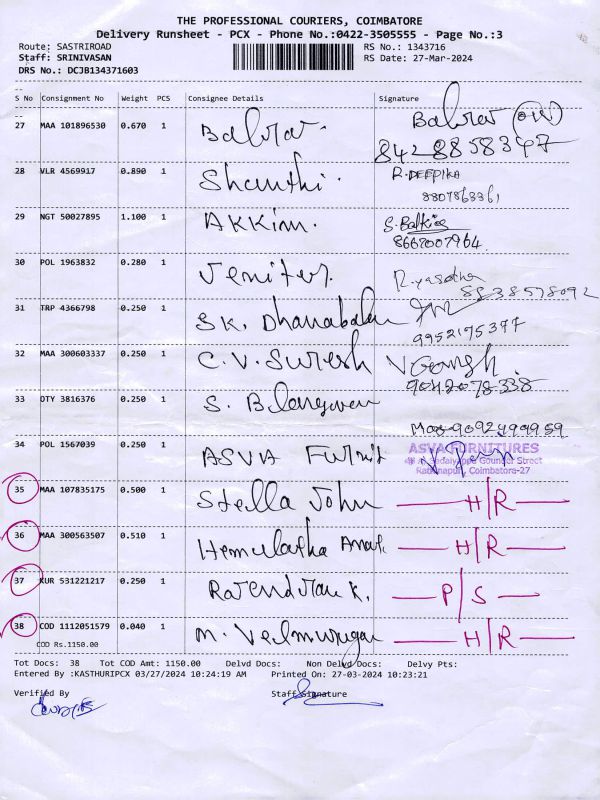 THE PROFESSIONAL COURIERS, COIMBATORE
Delivery Runsheet - PCX - Phone No.:0422-3505555 - Page No.:3
Route: SASTRIROAD RS No.: 1343716
Staff: SRINIVASAN RS Date: 27-Mar-2024
DRS No.: DCJB134371603
S No Consignment No Weight PCS Consignee Details Signature
27 MAA 101896530 0.670 1 Balvrar. Balvrar
8428858347
28 VLR 4569917 0.890 1 Shanthi. R.DEEPIKA
8807868361
29 NGT 50027895 1.100 1 AKKim. S.Balkiss
8667007964
30 POL 1963832 0.280 1 Jenifer. R.yasodha
8838578092
31 TRP 4366798 0.250 1 SK. Dhanabalan
9952175377
32 MAA 300603337 0.250 1 C.V. Suresh V Gomgh.
9042078338
33 OTY 3816376 0.250 1 S. Blangovan
Mob-9092499959
34 POL 1567039 0.250 1 ASVA Furnit
ASVA FURNITURES
Sadaiyappa Gounder Street
Rathinapuri, Coimbatore-27
35 MAA 107835175 0.500 1 Stella John H/R
36 MAA 300563507 0.510 1 Hemalatha Anat. H/R
37 KUR 531221217 0.250 1 Rajendran K. P/S
38 COD 1112051579 0.040 1 M. Velmurugan H/R
COD Rs.1150.00
Tot Docs: 38 Tot COD Amt: 1150.00 Delvd Docs: Non Delvd Docs: Delvy Pts:
Entered By :KASTHURIPCX 03/27/2024 10:24:19 AM Printed On: 27-03-2024 10:23:21
Verified By Staff Signature